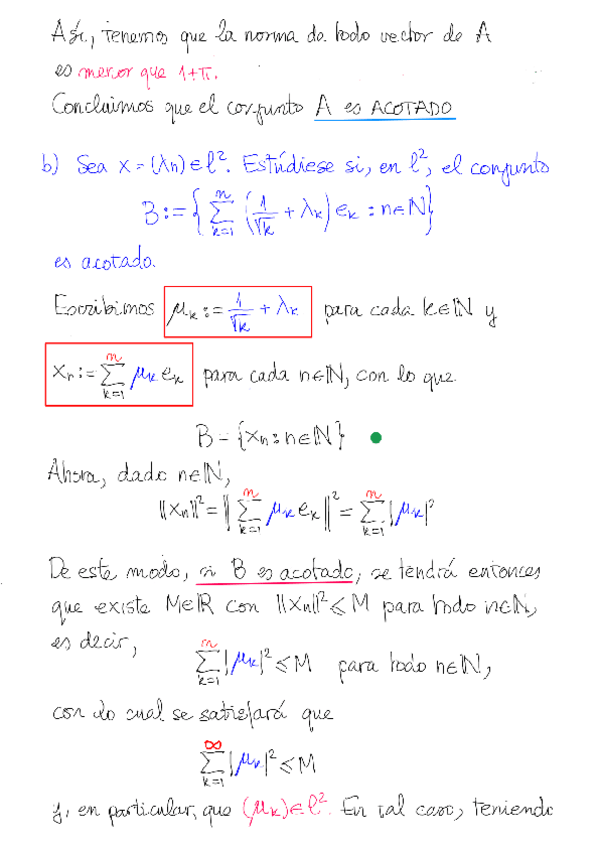 Así, tenemos que la norma de todo vector de A
es menor que 1+π.
Concluimos que el conjunto A es ACOTADO
b) Sea x = (λn) ∈ l². Estúdiese si, en l², el conjunto
B := { ∑_{k=1}^{n} (1/√k + λk) ek : n∈ℕ }
es acotado.
Escribimos μk := 1/√k + λk para cada k∈ℕ y
xn := ∑_{k=1}^{n} μk ek para cada n∈ℕ, con lo que
B = {xn : n∈ℕ}
Ahora, dado n∈ℕ,
‖xn‖² = ‖ ∑_{k=1}^{n} μk ek ‖² = ∑_{k=1}^{n} |μk|²
De este modo, si B es acotado, se tendrá entonces
que existe M∈ℝ con ‖xn‖² ≤ M para todo n∈ℕ,
es decir,
∑_{k=1}^{n} |μk|² ≤ M para todo n∈ℕ,
con lo cual se satisfará que
∑_{k=1}^{∞} |μk|² ≤ M
y, en particular, que (μk) ∈ l². En tal caso, teniendo